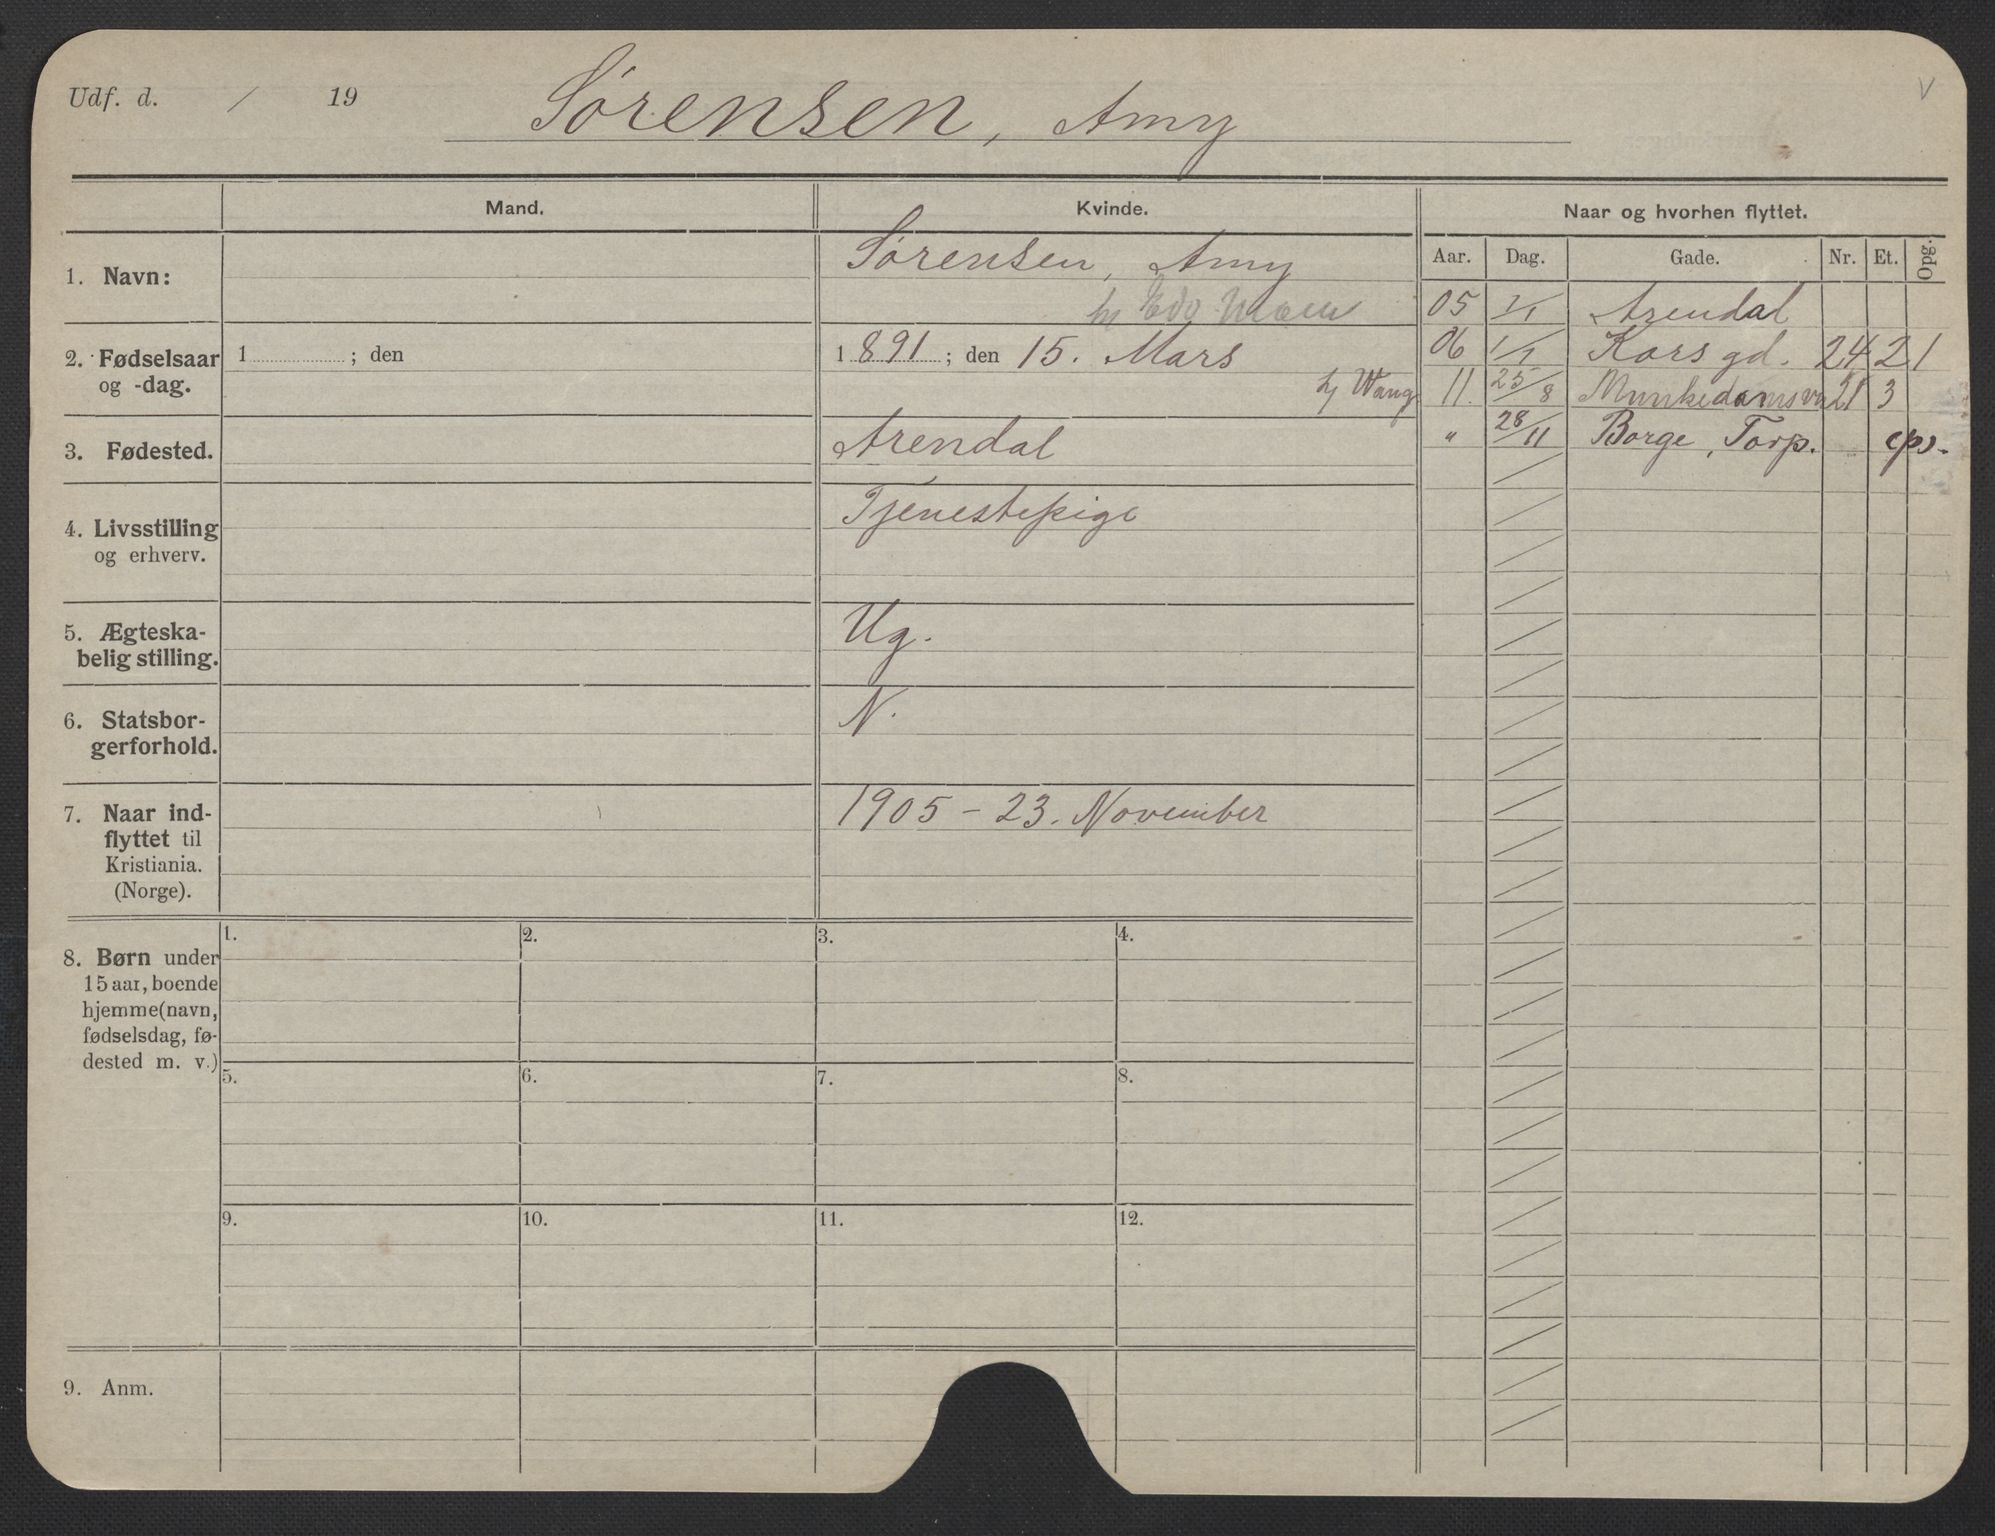 Udf. d. / 19
Sørensen, Amy
V
Mand.
Kvinde.
Naar og hvorhen flyttet.
Aar. Dag. Gade. Nr. Et. Opg.
1. Navn:
Sørensen, Amy
hj Edv
2. Fødselsaar
og -dag.
1 ; den
1891 ; den 15. Mars
hj Wang
3. Fødested.
Arendal
4. Livsstilling
og erhverv.
Tjenestepige
5. Ægteska-
belig stilling.
Ug.
6. Statsbor-
gerforhold.
N.
7. Naar ind-
flyttet til
Kristiania.
(Norge).
1905 - 23. November
8. Børn under
15 aar, boende
hjemme (navn,
fødselsdag, fø-
dested m. v.)
1. 2. 3. 4.
5. 6. 7. 8.
9. 10. 11. 12.
9. Anm.
05 1/1 Arendal
06 1/1 Kors gd. 24 2 1
11. 25/8 Munkedamsvn 21 3
" 28/11 Borge, Torp.